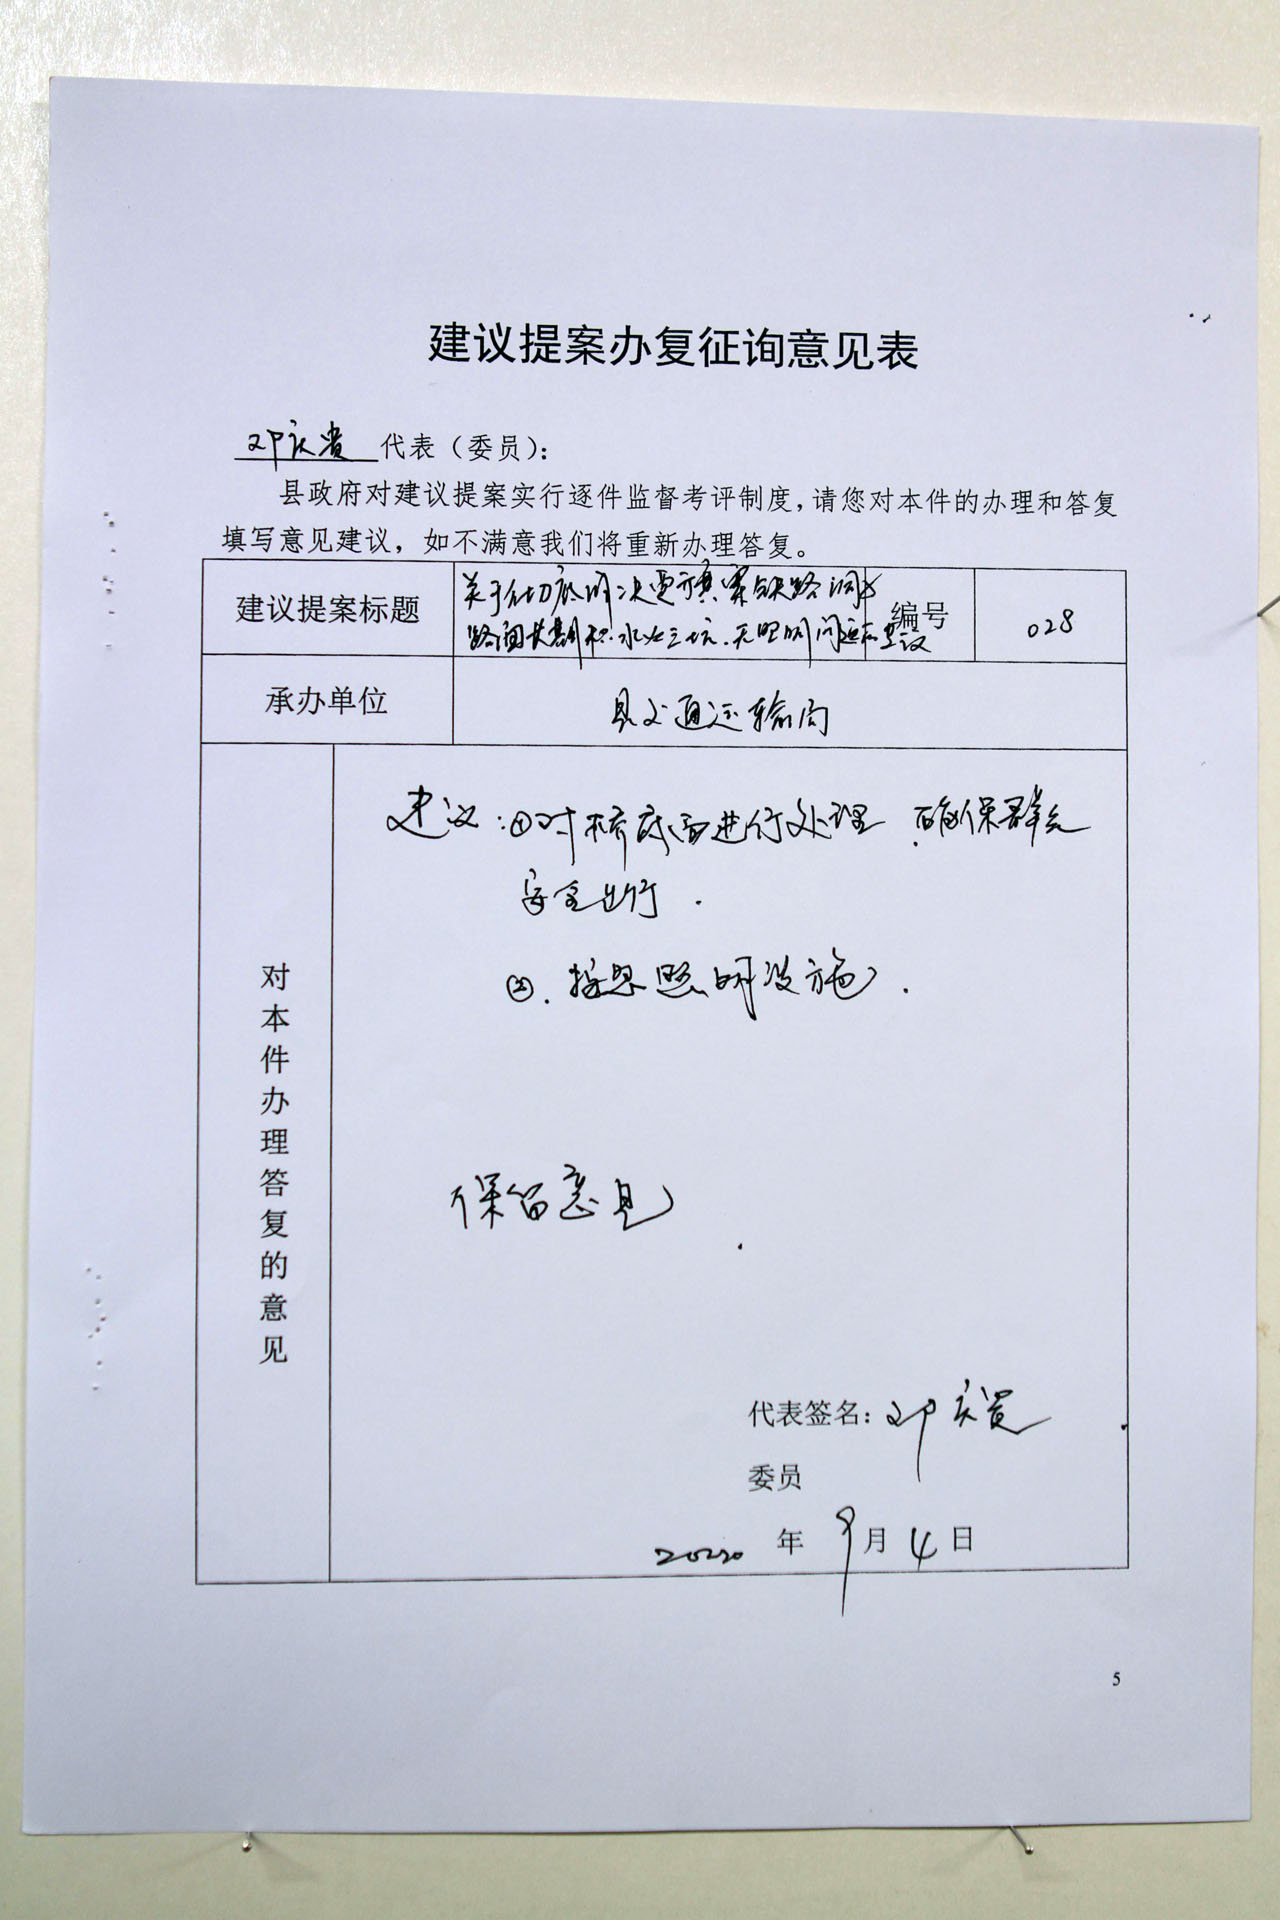 建议提案办复征询意见表
邓庆贵 代表（委员）：
县政府对建议提案实行逐件监督考评制度，请您对本件的办理和答复
填写意见建议，如不满意我们将重新办理答复。
建议提案标题
关于 决 铁路涵
路面长期积水 坑、无照明问题 建议
编号
028
承办单位
县交通运输局
对本件办理答复的意见
建议：①对桥底面进行处理 确保群众
安全出行.
②. 照明设施.
保留意见
代表签名：邓庆贵
委员
2020 年 9月 4日
5